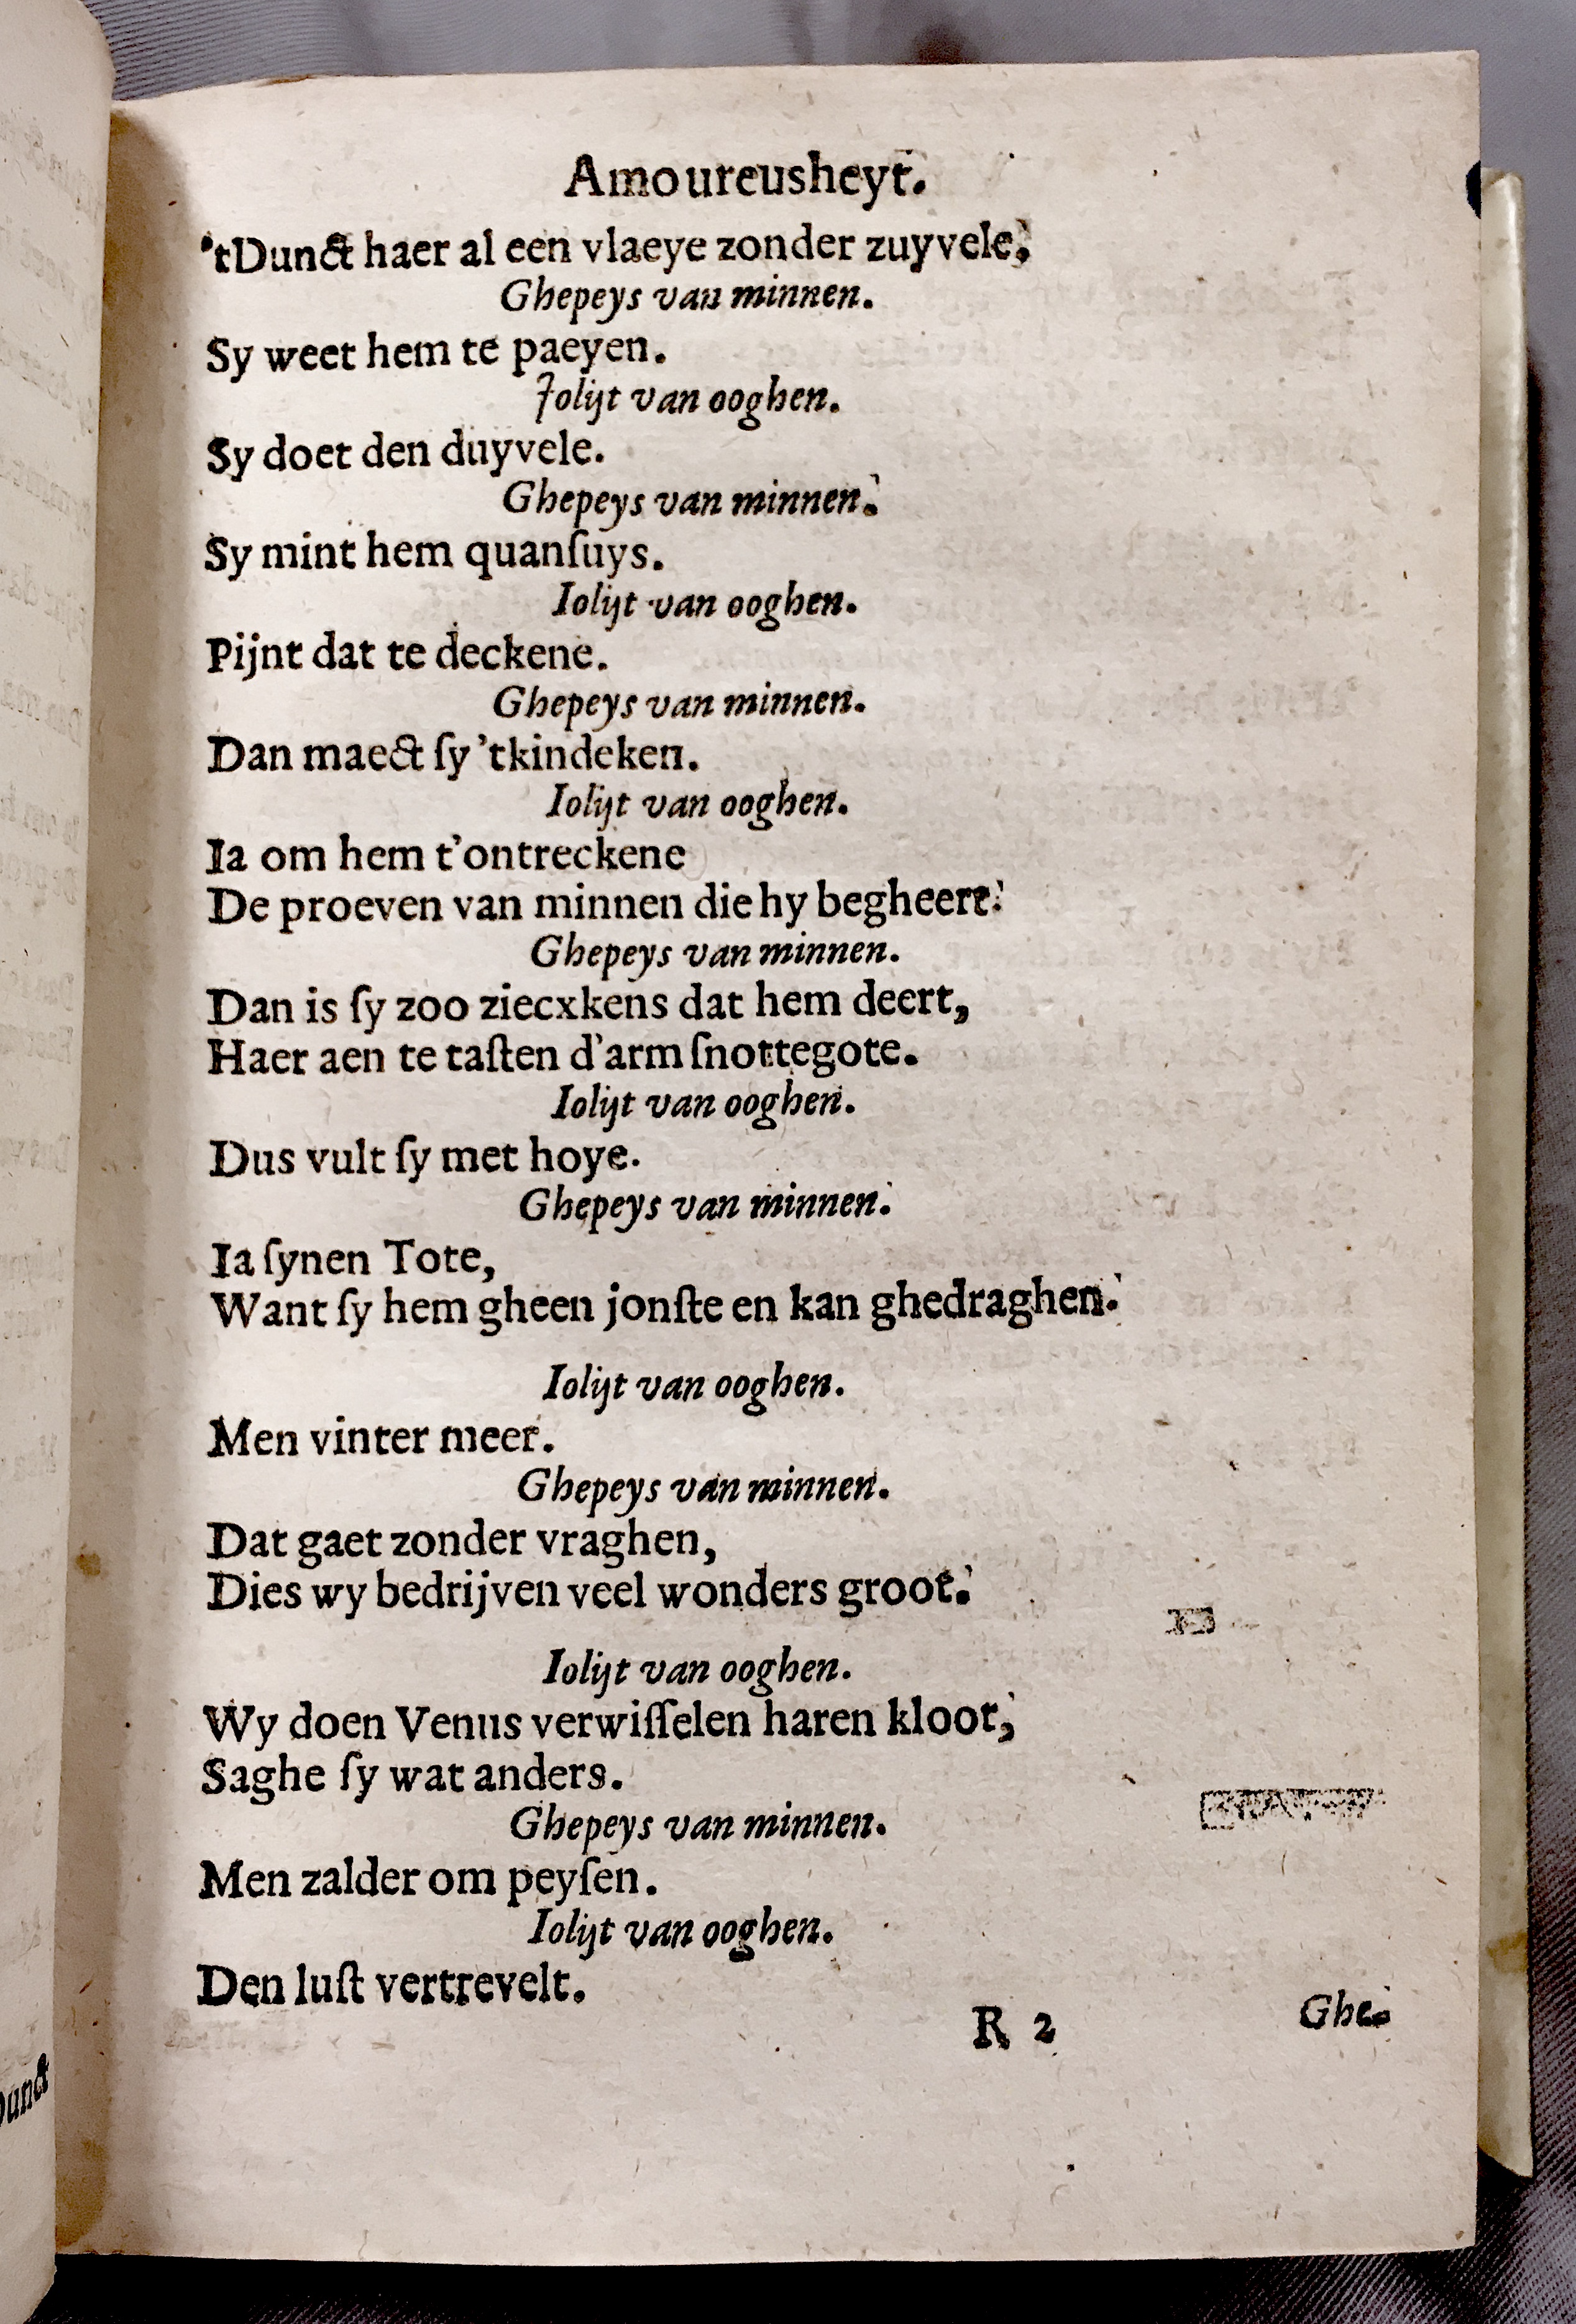 Amoureusheyt.
'tDunct haer al een vlaeye zonder zuyvele,
Ghepeys van minnen.
Sy weet hem te paeyen.
Jolijt van ooghen.
Sy doet den duyvele.
Ghepeys van minnen.
Sy mint hem quanſuys.
Iolijt van ooghen.
Pijnt dat te deckene.
Ghepeys van minnen.
Dan maect ſy 'tkindeken.
Iolijt van ooghen.
Ia om hem t'ontreckene
De proeven van minnen die hy begheert.
Ghepeys van minnen.
Dan is ſy zoo ziecxkens dat hem deert,
Haer aen te taſten d'arm ſnottegote.
Iolijt van ooghen.
Dus vult ſy met hoye.
Ghepeys van minnen.
Ia ſynen Tote,
Want ſy hem gheen jonſte en kan ghedraghen.
Iolijt van ooghen.
Men vinter meer.
Ghepeys van minnen.
Dat gaet zonder vraghen,
Dies wy bedrijven veel wonders groot.
Iolijt van ooghen.
Wy doen Venus verwiſſelen haren kloot,
Saghe ſy wat anders.
Ghepeys van minnen.
Men zalder om peyſen.
Iolijt van ooghen.
Den luſt vertrevelt.
R 2
Ghe-